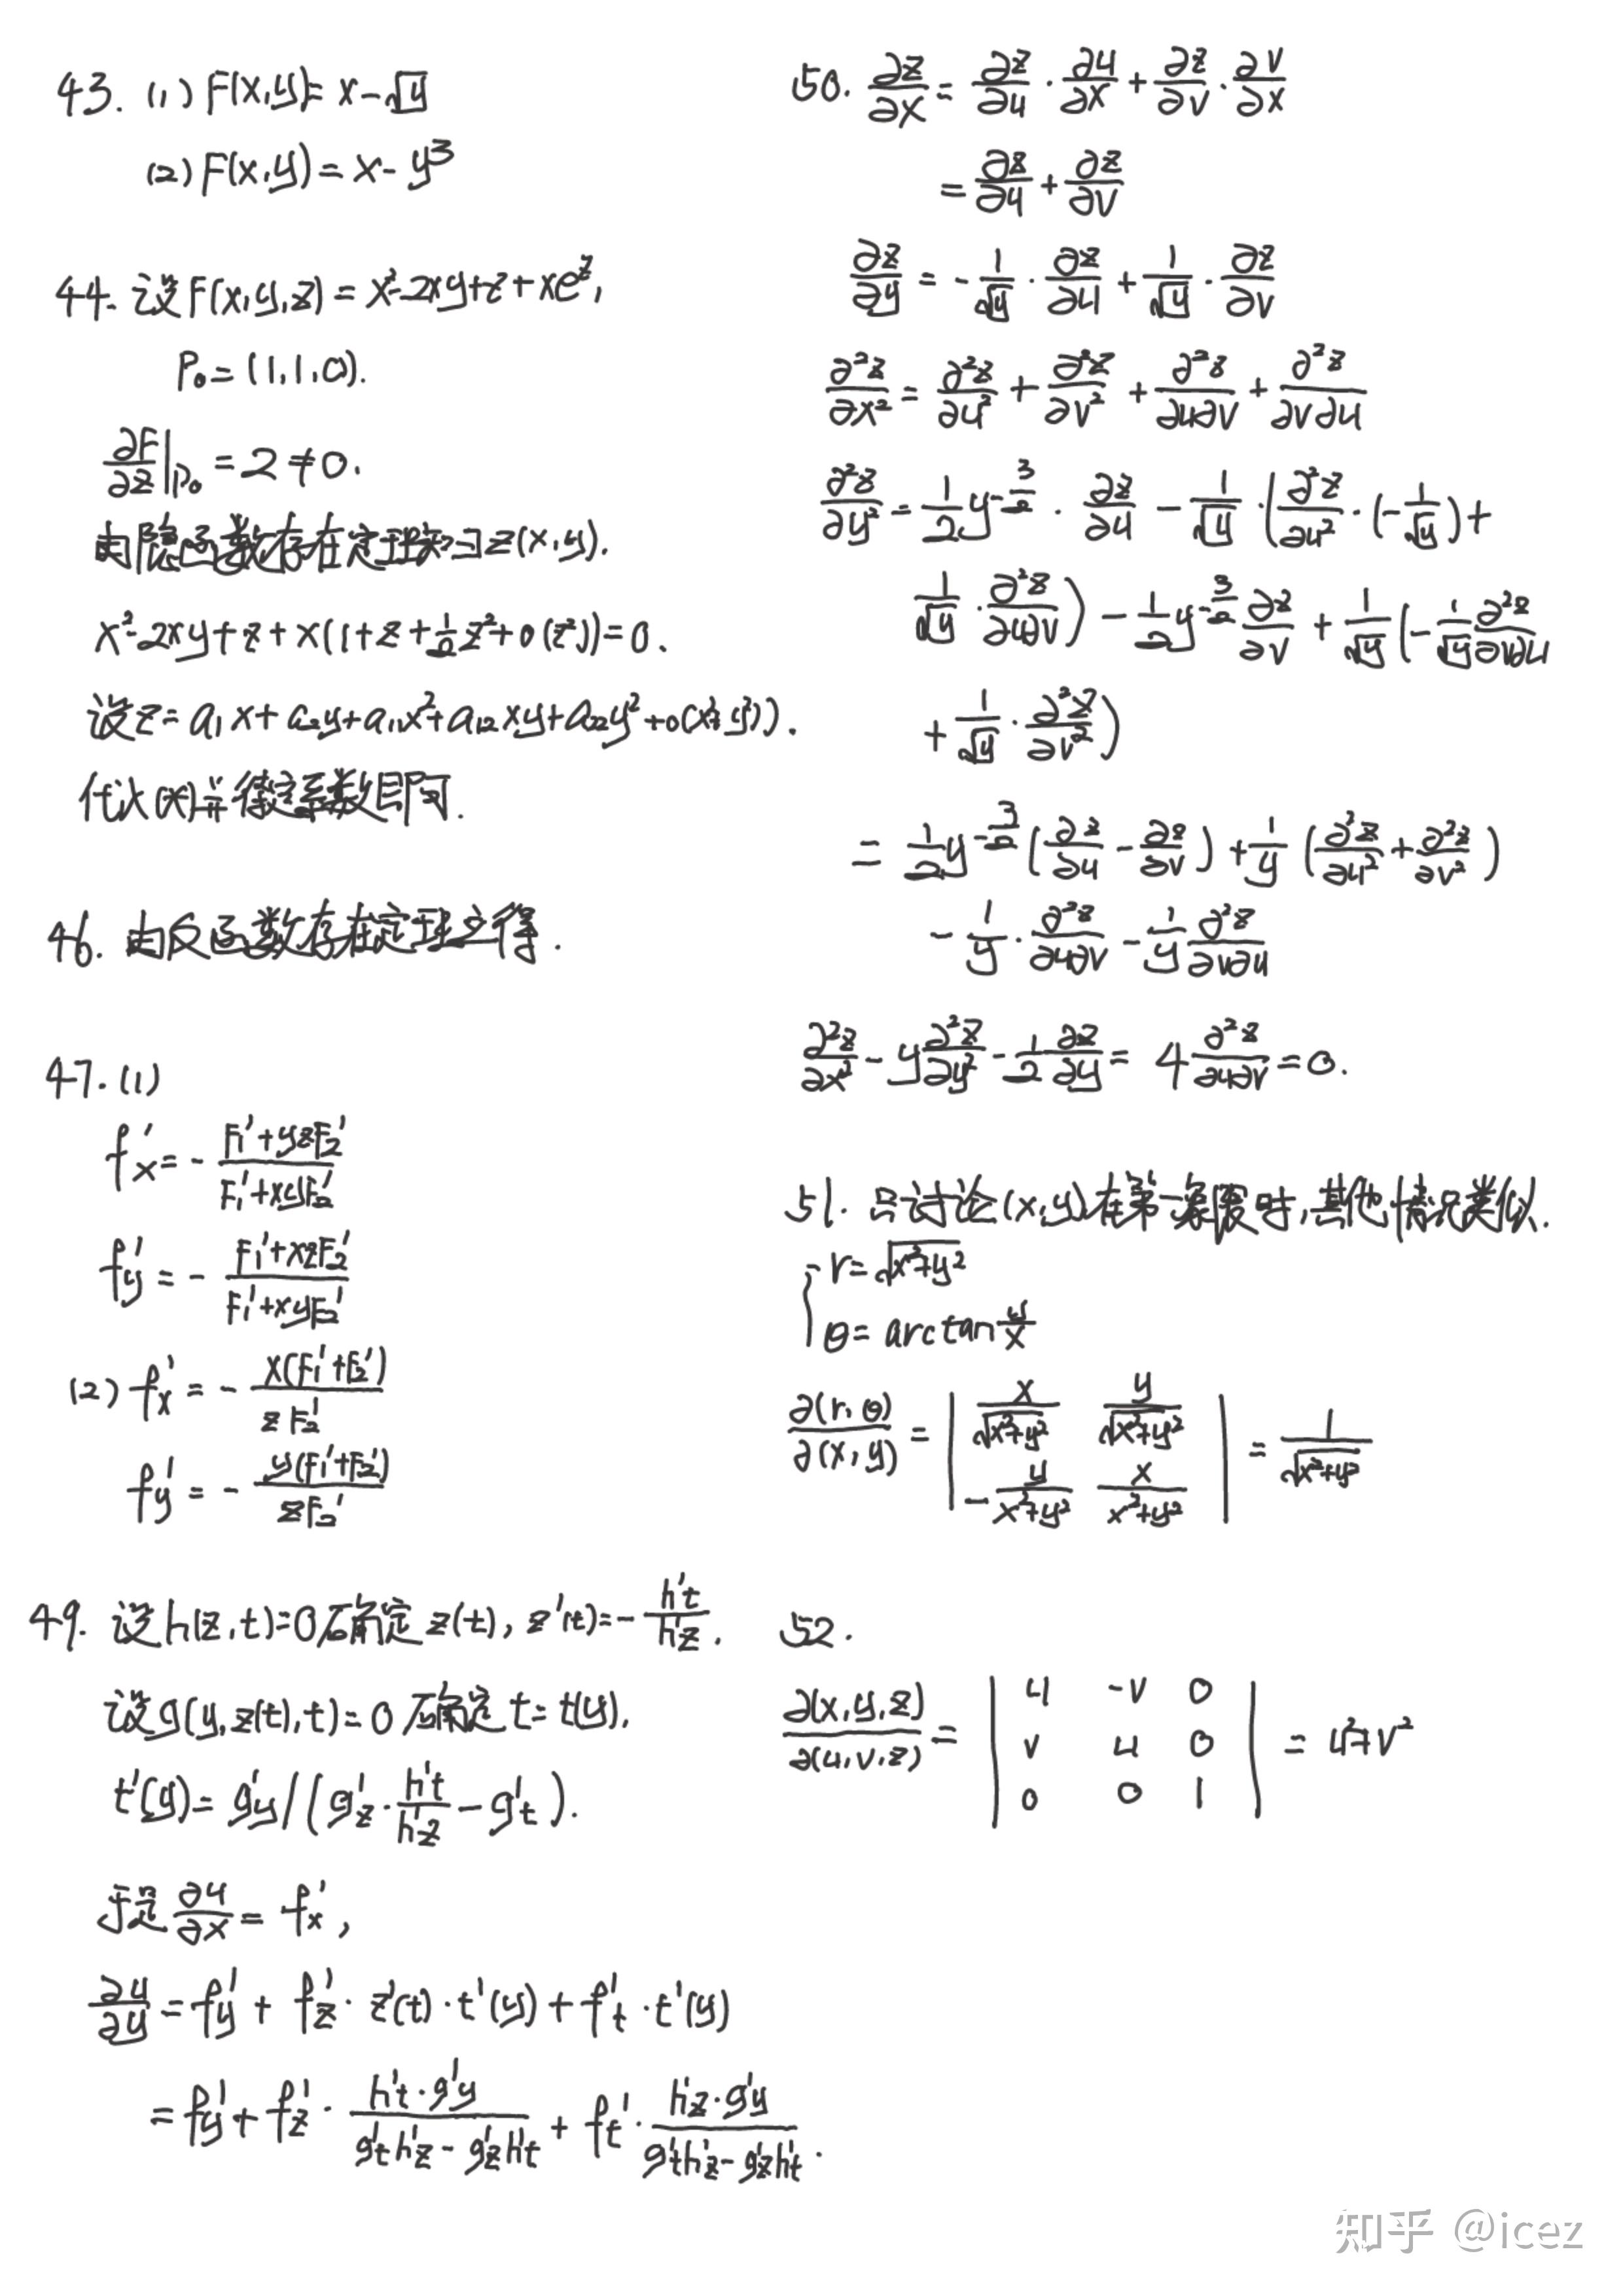 43. (1) F(x,y)= x-√y
(2) F(x,y) = x - y³
44. 设 F(x,y,z) = x²-2xy+z+xe^z,
P₀ = (1,1,0).
∂F/∂z|P₀ = 2 ≠ 0.
由隐函数存在定理知∃z(x,y).
x²-2xy+z+x(1+z+½z²+o(z²))=0.
设z= a₁x+a₂y+a₁₁x²+a₁₂xy+a₂₂y²+o(x²+y²)).
代入(*)并待定系数即可.
46. 由反函数存在定理立得.
47. (1)
f'x = - (F₁'+yzF₂')/(F₁'+xyF₂')
f'y = - (F₁'+xzF₂')/(F₁'+xyF₂')
(2) f'x = - x(F₁'+F₂')/(zF₂')
f'y = - y(F₁'+F₂')/(zF₂')
49. 设h(z,t)=0确定z(t), z'(t)=- h't/h'z.
设g(y,z(t),t)=0确定t=t(y),
t'(y)= g'y/(g'z·h't/h'z - g't).
于是 ∂u/∂x = f'x,
∂u/∂y = f'y + f'z·z'(t)·t'(y)+f't·t'(y)
= f'y + f'z · (h't·g'y)/(g't h'z - g'z h't) + f't · (h'z·g'y)/(g't h'z - g'z h't).
50. ∂z/∂x = ∂z/∂u · ∂u/∂x + ∂z/∂v · ∂v/∂x
= ∂z/∂u + ∂z/∂v
∂z/∂y = - 1/√y · ∂z/∂u + 1/√y · ∂z/∂v
∂²z/∂x² = ∂²z/∂u² + ∂²z/∂v² + ∂²z/∂u∂v + ∂²z/∂v∂u
∂²z/∂y² = ½y^(-3/2) · ∂z/∂u - 1/√y · (∂²z/∂u² · (-1/√y) +
1/√y · ∂²z/∂u∂v) - ½y^(-3/2) ∂z/∂v + 1/√y (- 1/√y ∂²z/∂v∂u
+ 1/√y · ∂²z/∂v²)
= ½y^(-3/2) (∂z/∂u - ∂z/∂v) + 1/y (∂²z/∂u² + ∂²z/∂v²)
- 1/y · ∂²z/∂u∂v - 1/y ∂²z/∂v∂u
∂²z/∂x² - y ∂²z/∂y² - ½ ∂z/∂y = 4 ∂²z/∂u∂v = 0.
51. 只讨论(x,y)在第一象限时,其他情况类似.
{ r=√(x²+y²)
θ= arctan y/x
∂(r,θ)/∂(x,y) = | x/√(x²+y²) y/√(x²+y²) | = 1/√(x²+y²)
-y/(x²+y²) x/(x²+y²)
52.
∂(x,y,z)/∂(u,v,z) = | u -v 0 | = u²+v²
v u 0
0 0 1
知乎 @icez